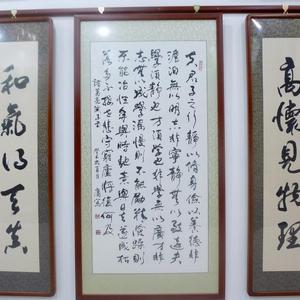 高懷見物理
夫君子之行靜以修身儉以養德非
澹泊無以明志非寧靜無以致遠夫
學須靜也才須學也非學無以廣才非
志無以成學慢則不能勵精險躁則
不能冶性年與時馳意與日去遂成枯
落多不接世悲守窮廬將復何及
諸葛亮誡子書
和氣得天真